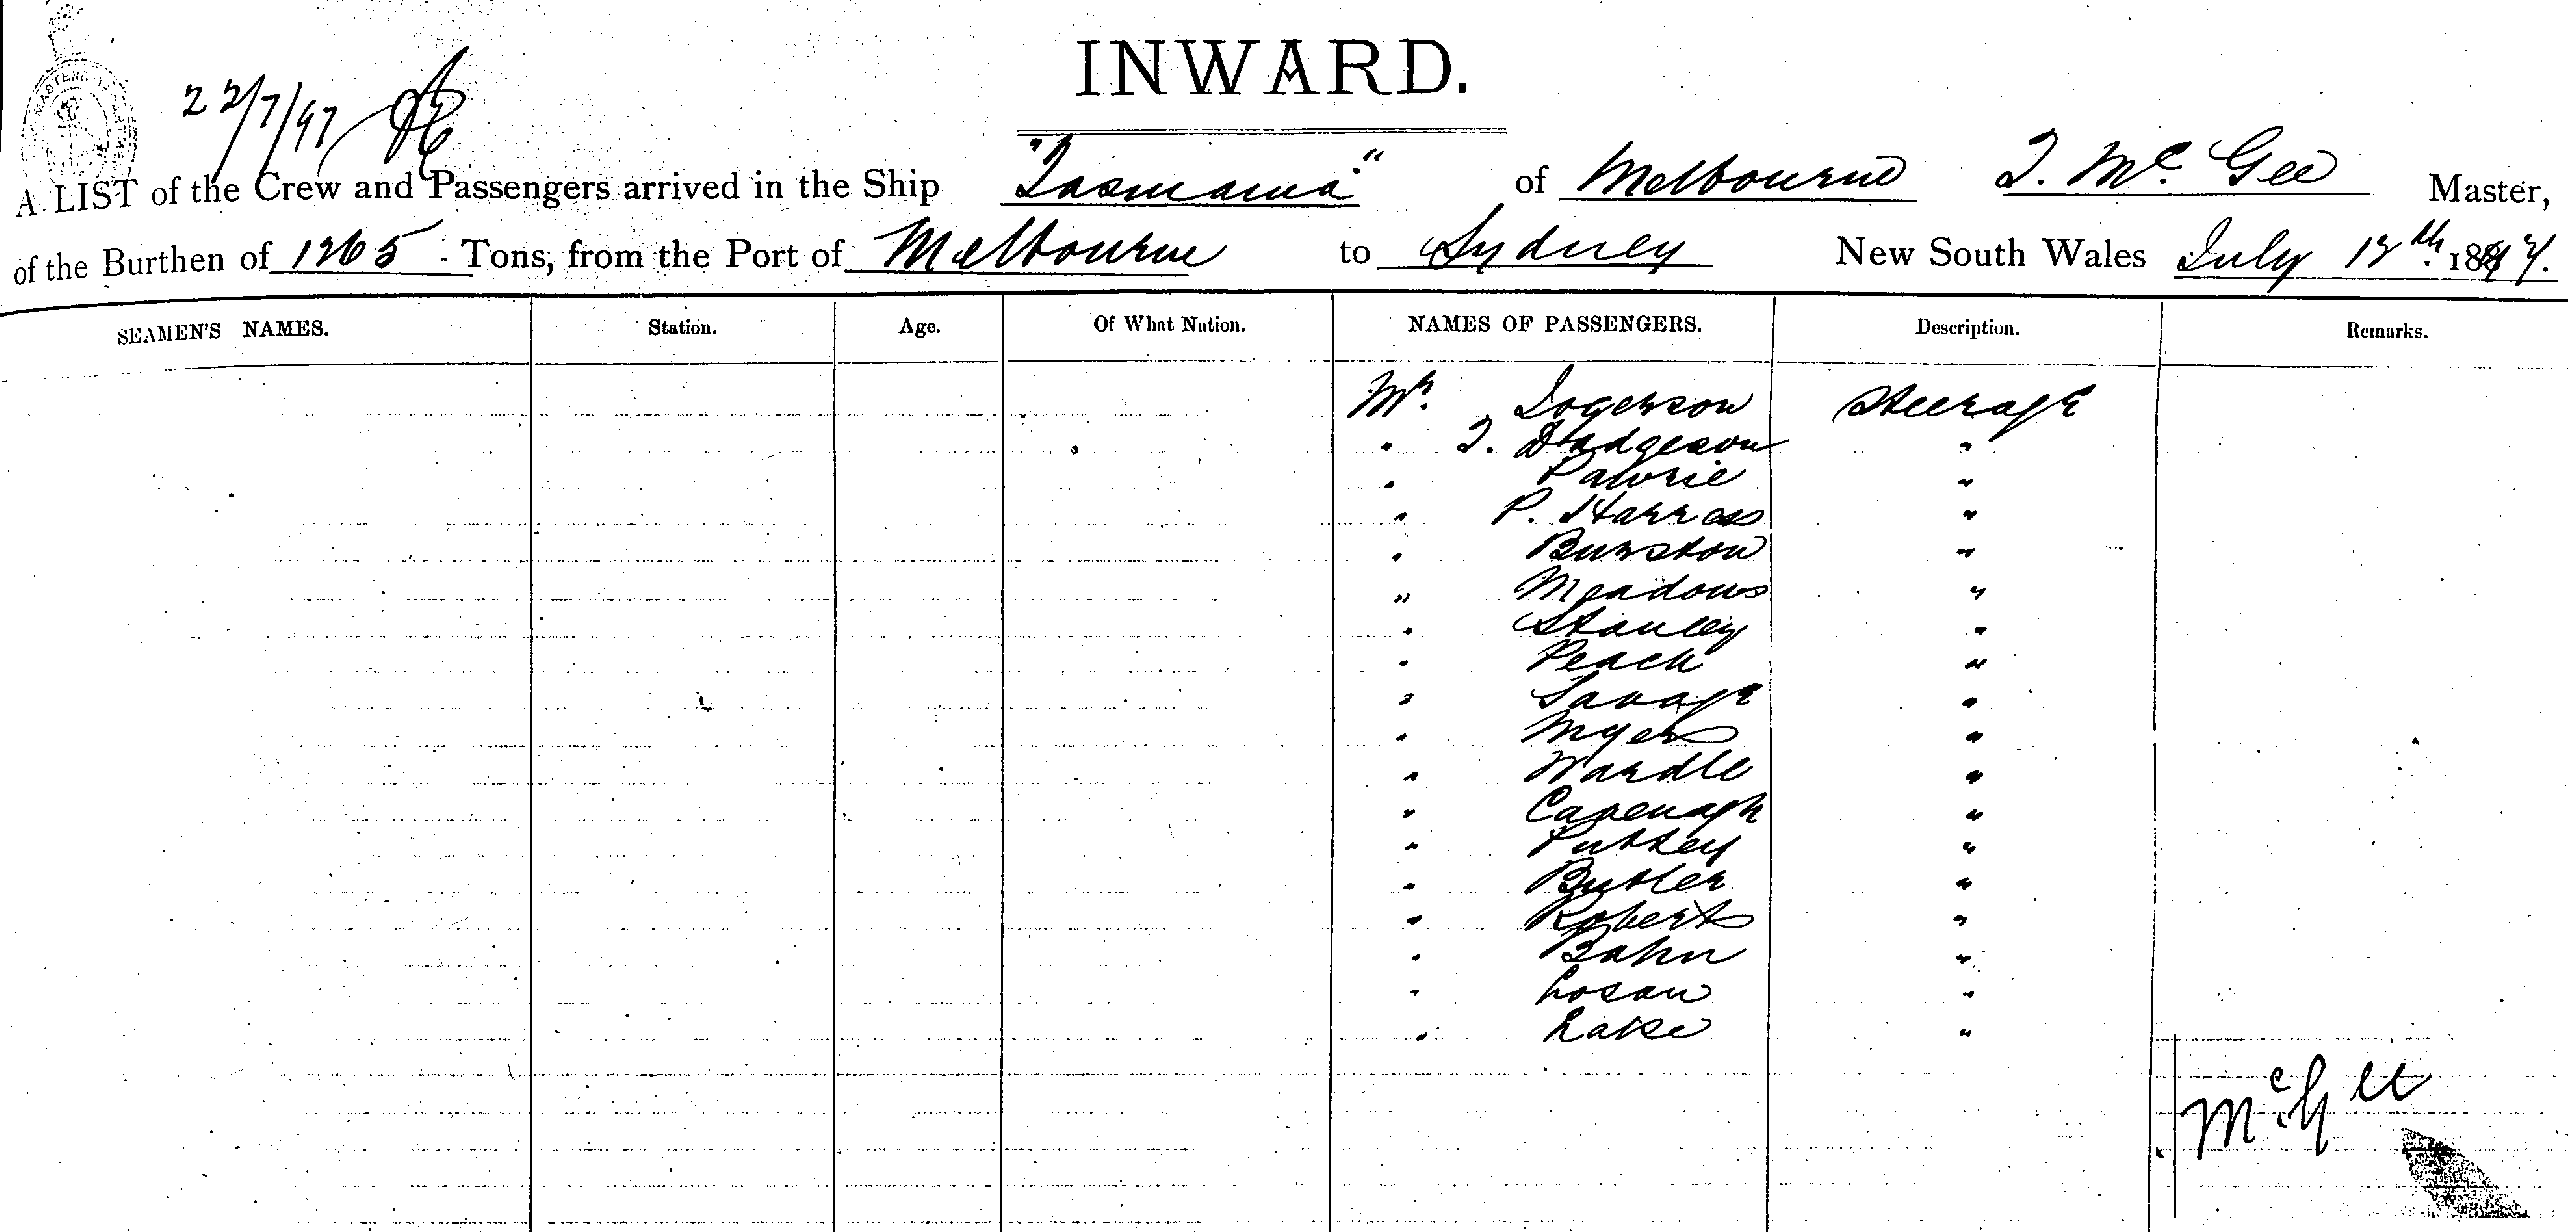 INWARD.
22/7/97
A LIST of the Crew and Passengers arrived in the Ship "Tasmania" of Melbourne T. McGee Master,
of the Burthen of 1265 Tons, from the Port of Melbourne to Sydney New South Wales July 12th 1897.
SEAMEN'S NAMES. Station. Age. Of What Nation. NAMES OF PASSENGERS. Description. Remarks.
Mr. Steerage
" T. Dodgeson "
" Lawrie "
" P. Harress "
" Burston "
" Meadows "
" Stanley "
" Peach "
" Savage "
" Myers "
" Wardle "
" Cavenagh "
" "
" Butler "
" Roberts "
" Bahn "
" Logan "
" Lake "
McGee